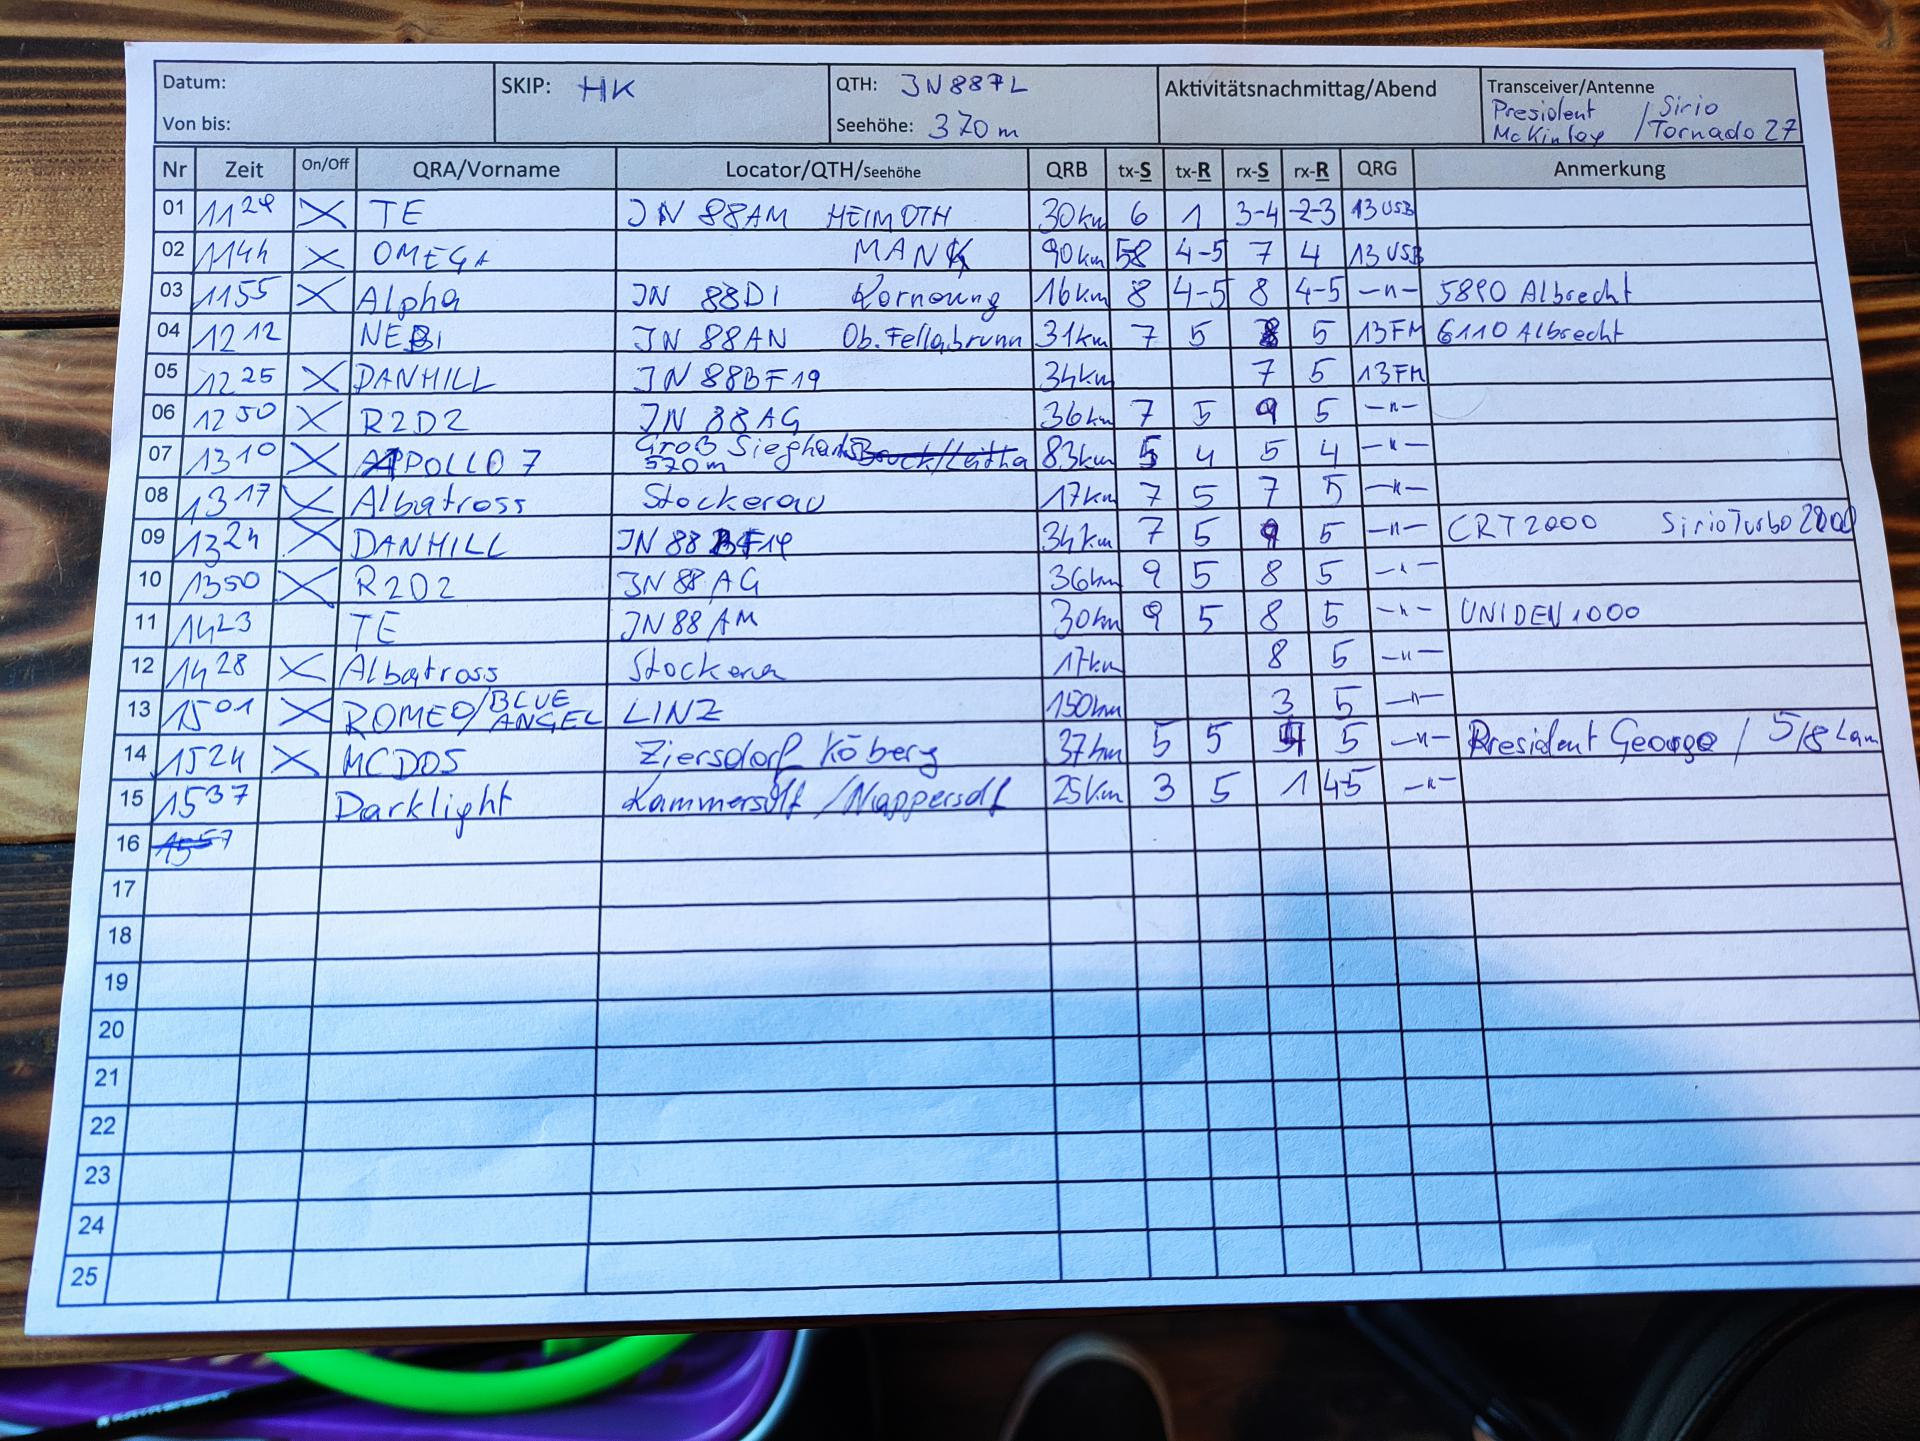 Datum: SKIP: HK QTH: JN887L Aktivitätsnachmittag/Abend Transceiver/Antenne
Von bis: Seehöhe: 370m President McKinley / Sirio Tornado 27
Nr Zeit On/Off QRA/Vorname Locator/QTH/Seehöhe QRB tx-S tx-R rx-S rx-R QRG Anmerkung
01 X TE JN 88AM HEIMOTH 30km 6 1 3-4 2-3 13 USB
02 1144 X OMEGA 90km 58 4-5 7 4 13 USB
03 1155 X Alpha JN 88DI 16km 8 4-5 8 4-5 -"- 5890 Albrecht
04 1212 NEBI JN 88AN Ob. Fellabrunn 31km 7 5 8 5 13FM 6110 Albrecht
05 1225 X DANHILL JN 88BF19 34km 7 5 13FM
06 1250 X R2D2 JN 88AG 36km 7 5 9 5 -"-
07 1310 X APPOLLO 7 Groß Sieghards Bruck/Leitha 570m 83km 5 4 5 4 -"-
08 1317 X Albatross Stockerau 17km 7 5 7 5 -"-
09 1324 X DANHILL JN 88 BF19 34km 7 5 9 5 -"- CRT2000 Sirio Turbo 2000
10 1350 X R2D2 JN88AG 36km 9 5 8 5 -"-
11 1423 TE JN88AM 30km 9 5 8 5 -"- UNIDEN 1000
12 1428 X Albatross Stockerau 17km 8 5 -"-
13 1501 X ROMEO/BLUE ANGEL LINZ 150km 3 5 -"-
14 1524 X MCDOS Ziersdorf Köberg 37km 5 5 4 5 -"- President George / 5/8 Lam
15 1537 Darklight 25km 3 5 1 4-5 -"-
16 1557
17
18
19
20
21
22
23
24
25